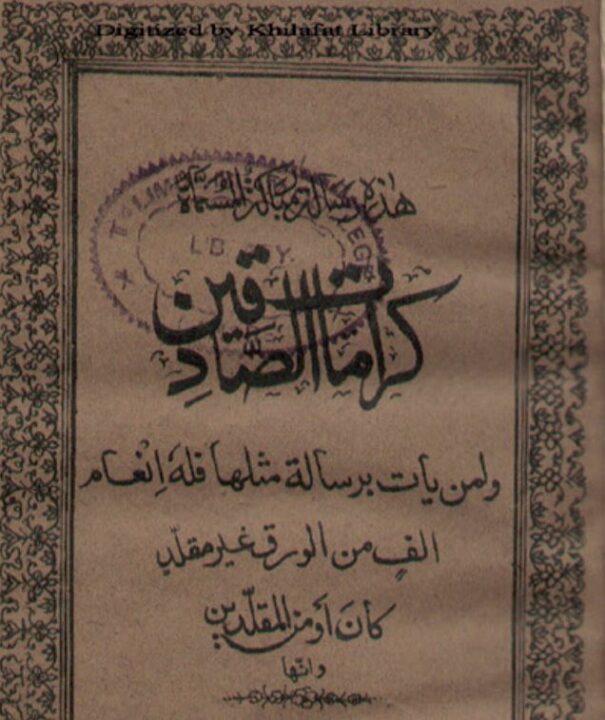 Digitized by Khilafat Library
هذه رسالة مباركة المسماة
كرامات الصادقين
ولمن يات برسالة مثلها فله انعام
الفٍ من الورق غير مقلّد
كان او من المقلّدين
وانّها